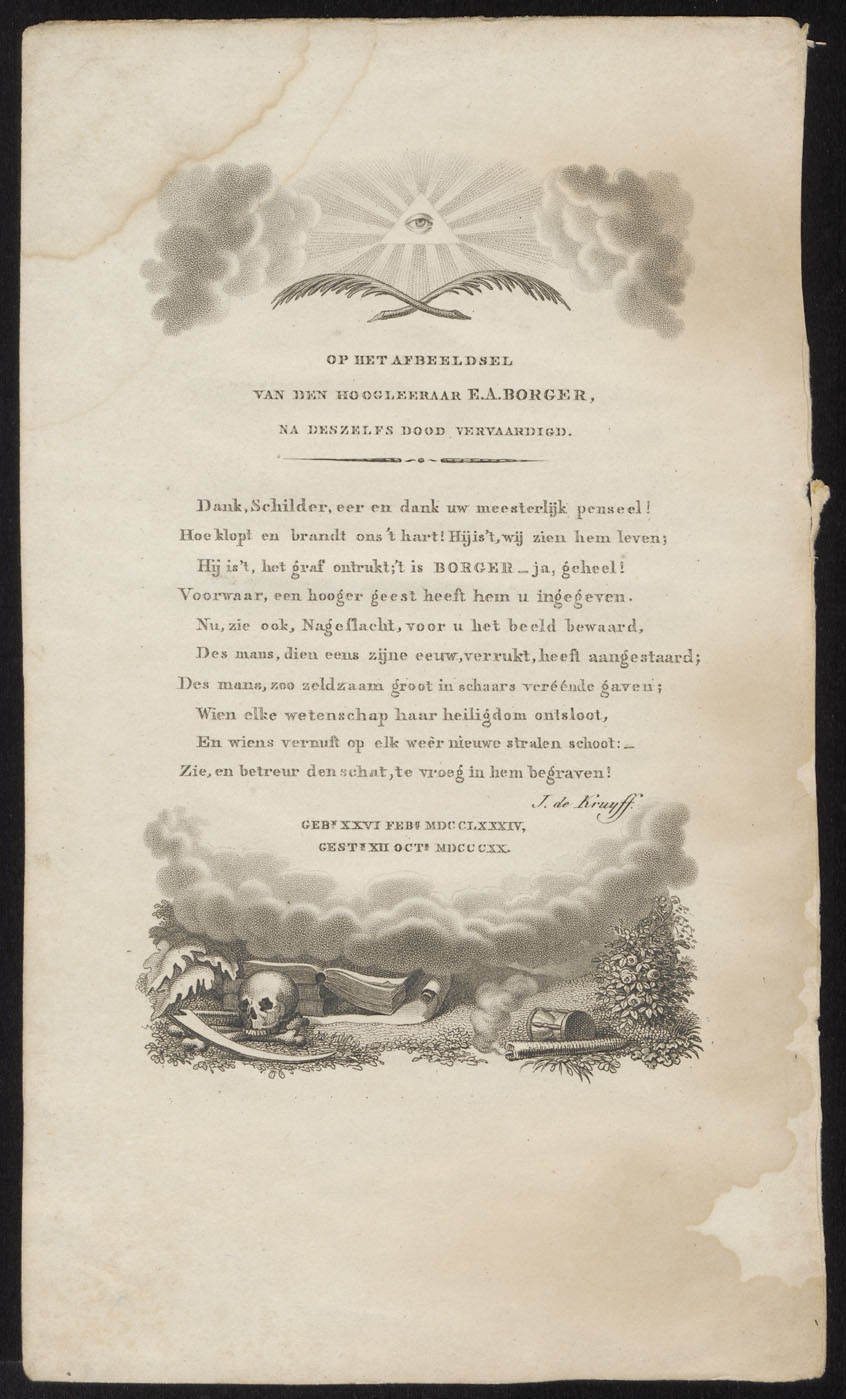 OP HET AFBEELDSEL
VAN DEN HOOGLEERAAR E.A. BORGER,
NA DESZELFS DOOD VERVAARDIGD.
Dank, Schilder, eer en dank uw meesterlijk penseel!
Hoe klopt en brandt ons 't hart! Hij is 't, wij zien hem leven;
Hij is 't, het graf ontrukt; 't is BORGER _ ja, geheel!
Voorwaar, een hooger geest heeft hem u ingegeven.
Nu, zie ook, Nageslacht, voor u het beeld bewaard,
Des mans, dien eens zijne eeuw, verrukt, heeft aangestaard;
Des mans, zoo zeldzaam groot in schaars veréénde gaven;
Wien elke wetenschap haar heiligdom ontsloot,
En wiens vernuft op elk weêr nieuwe stralen schoot: _
Zie, en betreur den schat, te vroeg in hem begraven!
J. de Kruyff.
GEBR. XXVI FEBR. MDCCLXXXIV,
GESTR. XII OCTR. MDCCCXX.